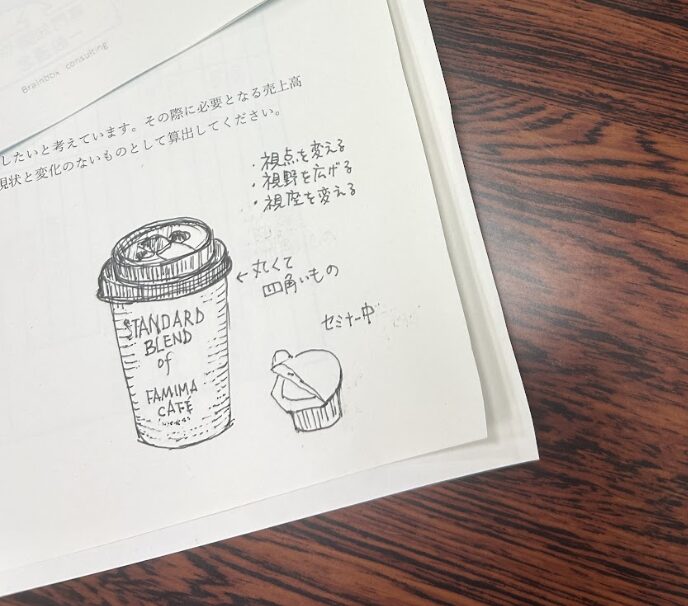 Brainbox consulting
したいと考えています。その際に必要となる売上高
現状と変化のないものとして算出してください。
・視点を変える
・視野を広げる
・視座を変える
←丸くて
四角いもの
セミナー中
STANDARD
BLEND
of
FAMIMA
CAFÉ